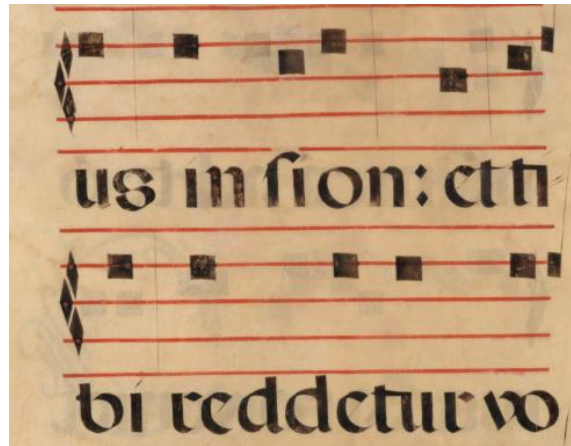 us in sion: et ti
bi reddetur vo